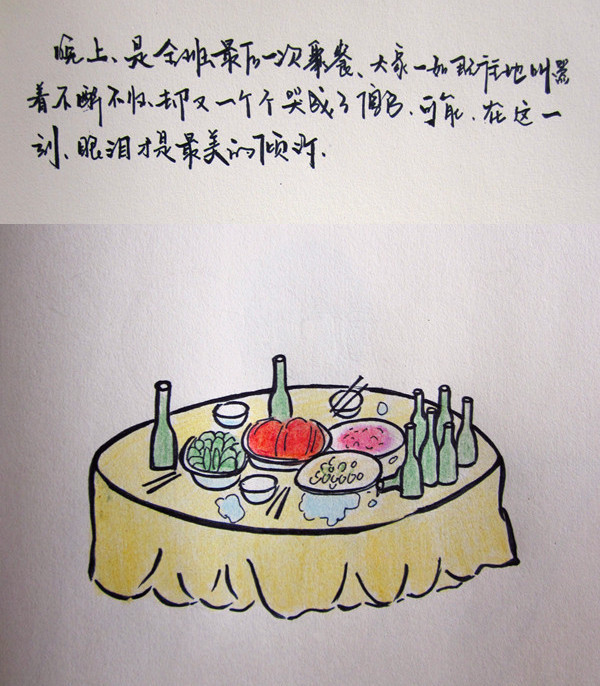 晚上、是全班最后一次聚餐、大家一如既往地叫嚣
着不断不归、却又一个个哭成了傻B、可能、在这一
刻、眼泪才是最美的倾诉.